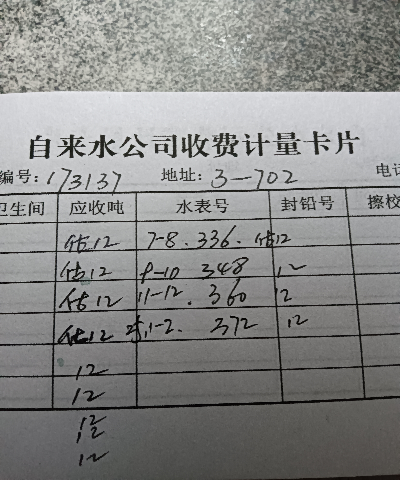 自来水公司收费计量卡片
编号:173137 地址:3-702 电话
卫生间 应收吨 水表号 封铅号 擦校
估12 7-8. 336. 估12
估12 9-10 348 12
估12 11-12. 360 12
估12 1-2. 372 12
12
12
12
12
12